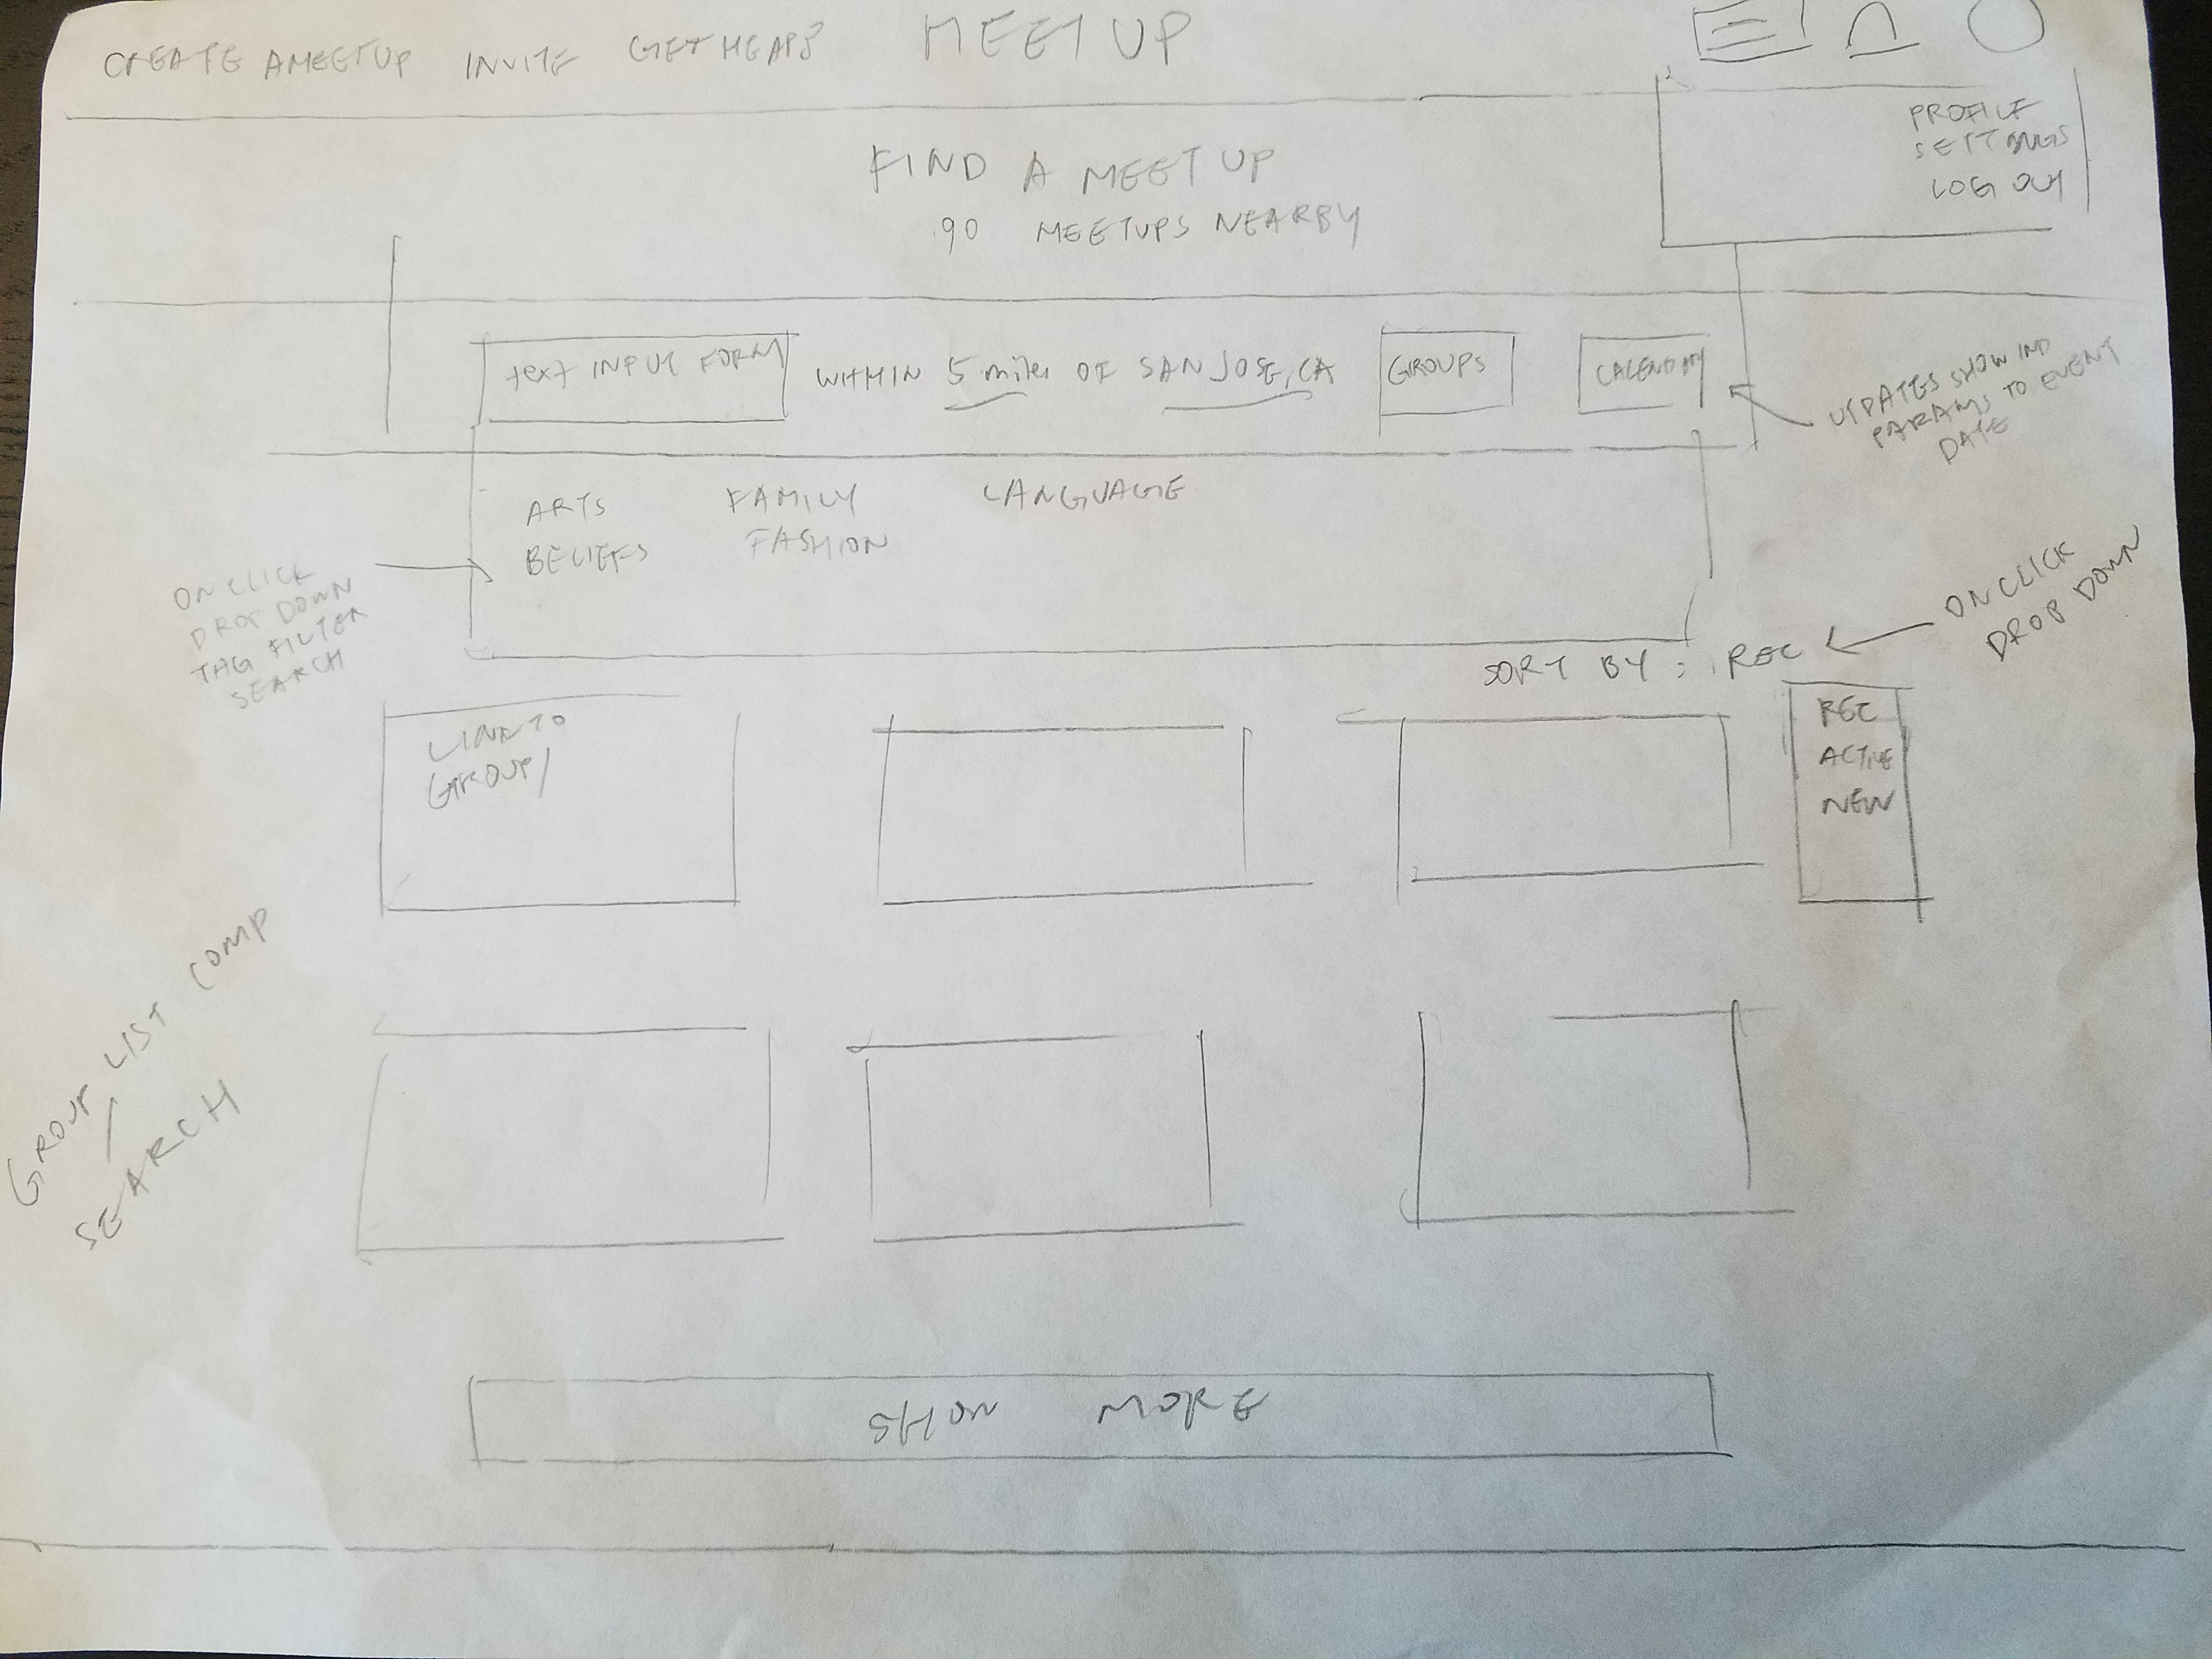 CREATE A MEETUP INVITE GET THE APP MEET UP
PROFILE
SETTINGS
LOG OUT
FIND A MEET UP
90 MEETUPS NEARBY
text INPUT FORM WITHIN 5 miles OF SAN JOSE, CA GROUPS CALENDAR
UPDATES SHOW IND
PARAMS TO EVENT
DATE
ARTS FAMILY LANGUAGE
BELIEFS FASHION
ON CLICK
DROP DOWN
TAG FILTER
SEARCH
ON CLICK
DROP DOWN
SORT BY : REC
REC
ACTIVE
NEW
LINK TO
GROUP/
GROUP LIST COMP
/
SEARCH
SHOW MORE